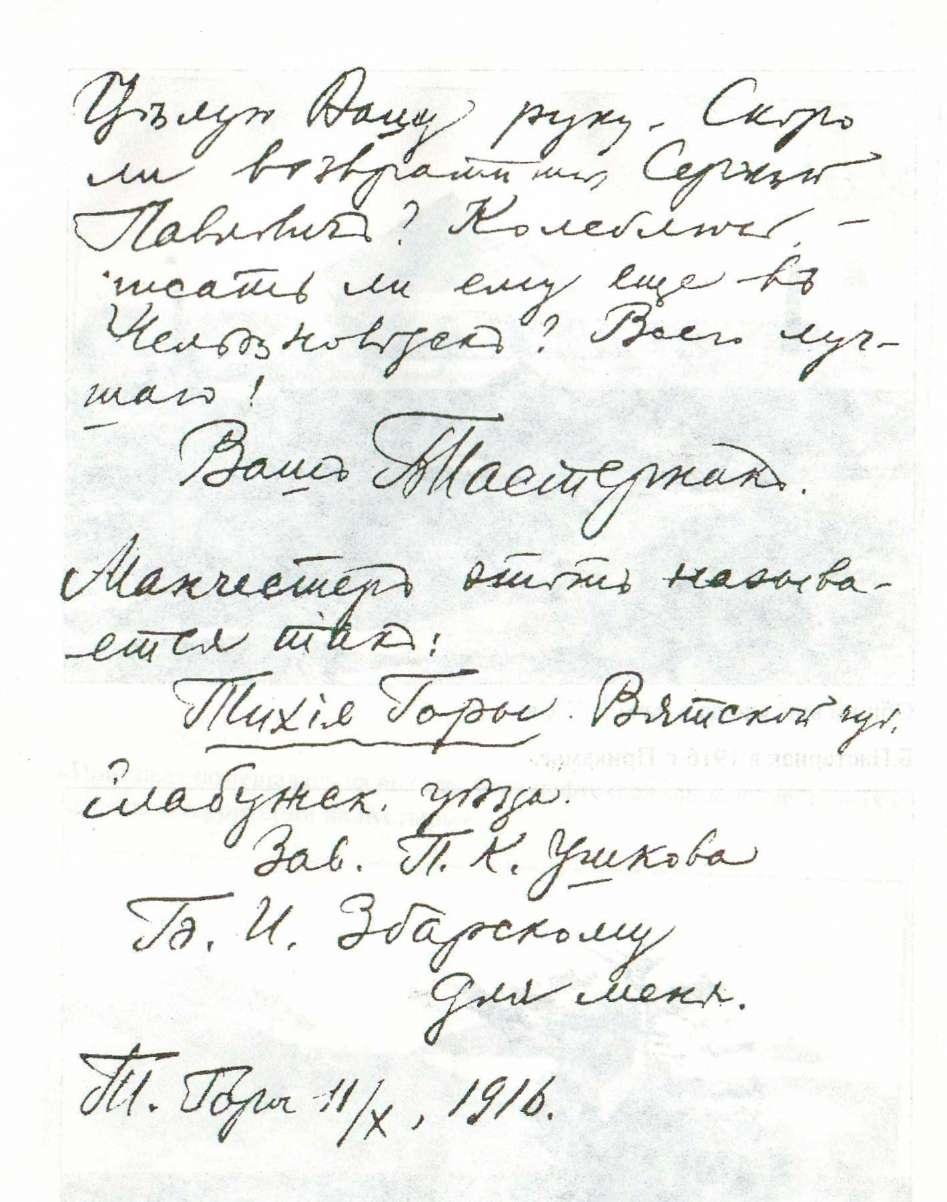 Цѣлую Вашу руку. Скоро
ли возвратится Сергѣй
Павловичъ? Колеблюсь, –
писать ли ему еще въ
Желѣзноводскъ? Всего луч-
шаго!
Вашъ БПастернакъ.
Манчестеръ этотъ называ-
ется такъ:
Тихія Горы. Вятской губ.
Елабужск. уѣзда.
Зав. П. К. Ушкова
Б. И. Збарскому
для меня.
Т. Горы 11/X, 1916.